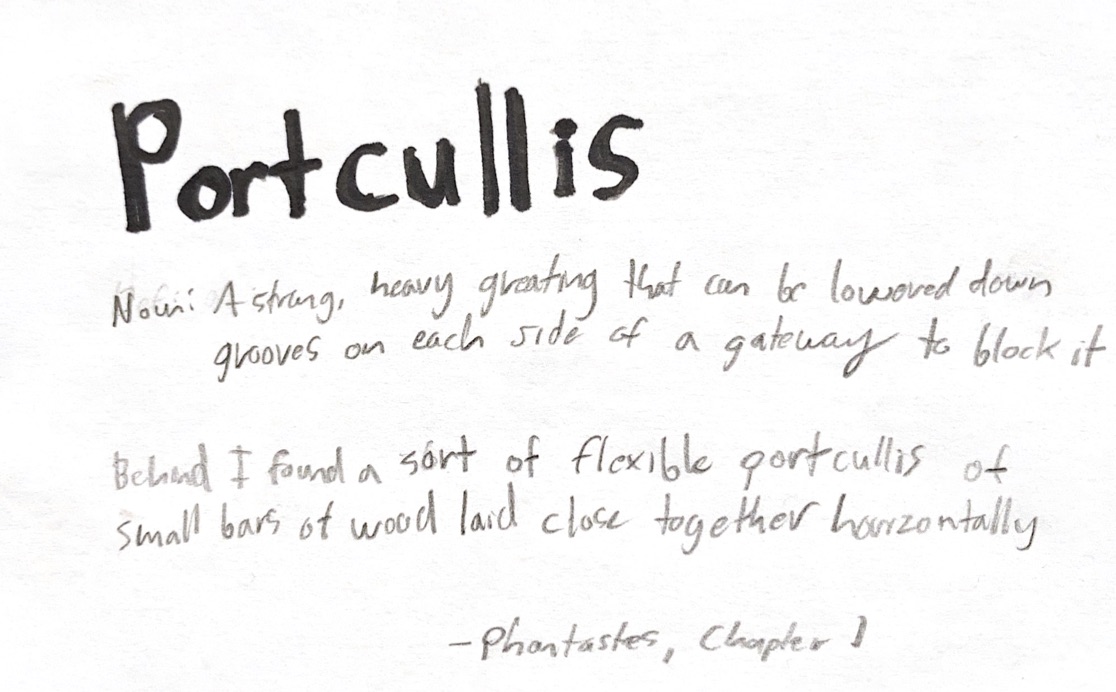 Portcullis
Noun: A strong, heavy greating that can be lowered down
grooves on each side of a gateway to block it
Behind I found a sort of flexible portcullis of
small bars of wood laid close together horizontally
-Phantastes, Chapter 1